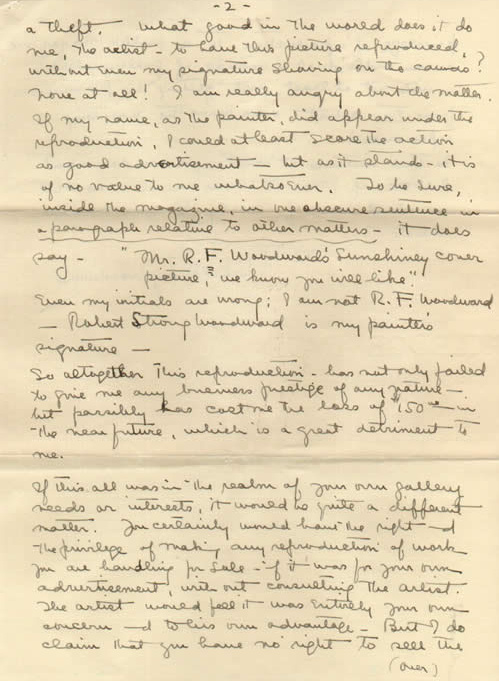 - 2 -
a theft. What good in the world does it do
me, the artist - to have this picture reproduced,
without even my signature showing on the canvas?
None at all! I am really angry about the matter.
If my name, as the painter, did appear under the
reproduction, I could at least score the action
as good advertisement - but as it stands - it is
of no value to me whatsoever. To be sure,
inside the magazine, in one obscure sentence in
a paragraph relative to other matters - it does
say - "Mr. R. F. Woodward's Sunshiney cover
picture, we know you will like."
Even my initials are wrong; I am not R. F. Woodward
- Robert Strong Woodward is my painter's
signature -
So altogether this reproduction - has not only failed
to give me any business prestige of any nature -
but possibly has cost me the loss of $150 - in
the near future, which is a great detriment to
me.
If this all was in the realm of your own gallery
needs or interests, it would be quite a different
matter. You certainly would have the right - d
the privilege of making any reproduction of work
you are handling for sale - if it was for your own
advertisement, with out consulting the artist.
The artist would feel it was entirely your own
concern - d to his own advantage - But I do
claim that you have no right to sell the
(over)